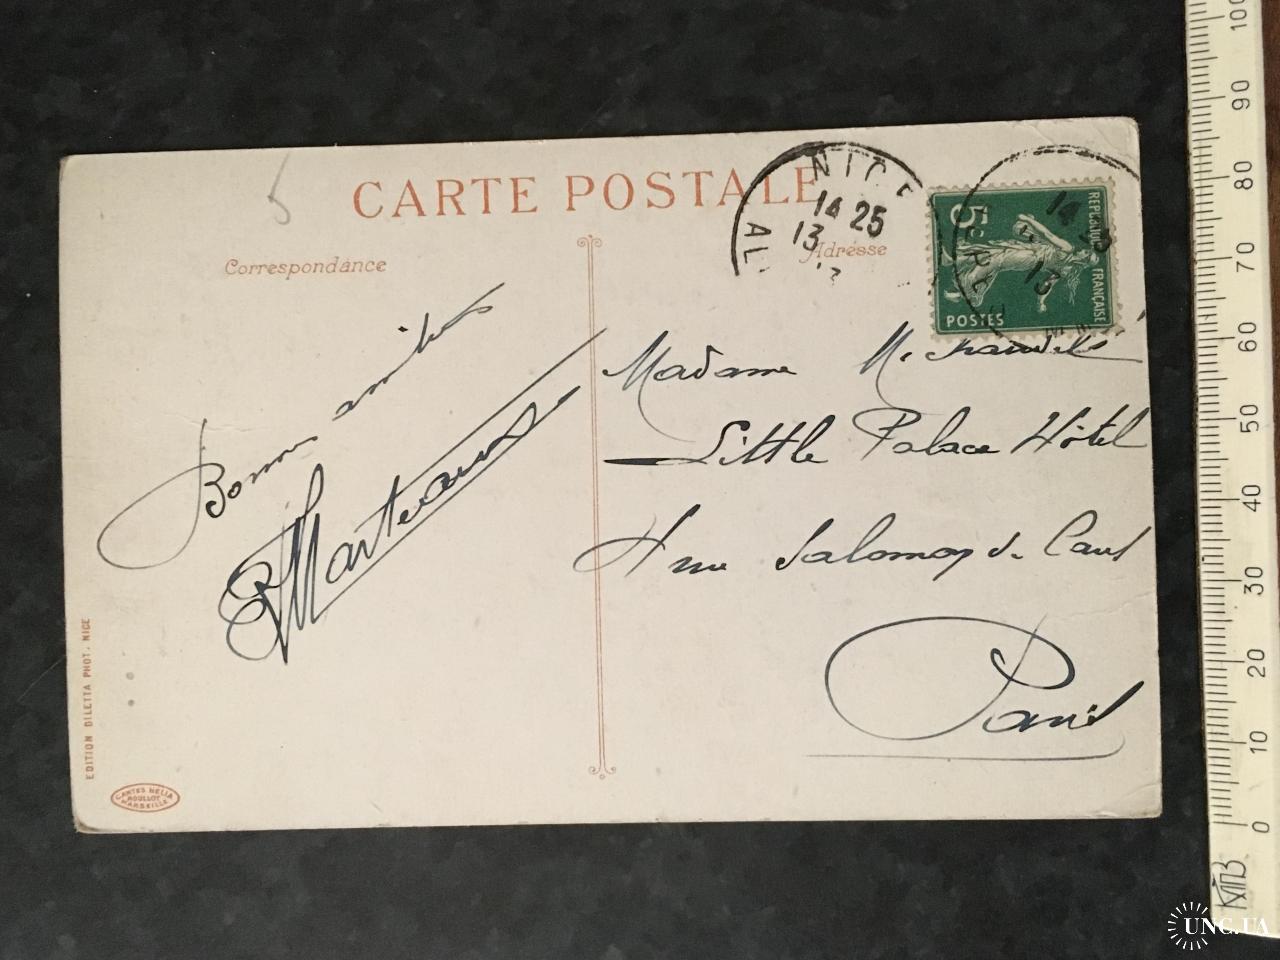 CARTE POSTALE
Correspondance
Adresse
NICE
14 25
13
AL
5c
REPUBLIQUE FRANÇAISE
POSTES
14 25
13
Bonnes amitiés
Marteaux
Madame
Little Palace Hôtel
4 rue Salomon de Caus
Paris
EDITION GILETTA PHOT. NICE
CARTES HELIA
ROULLOT
MARSEILLE
100
90
80
70
60
50
40
30
20
10
0
UNC.UA